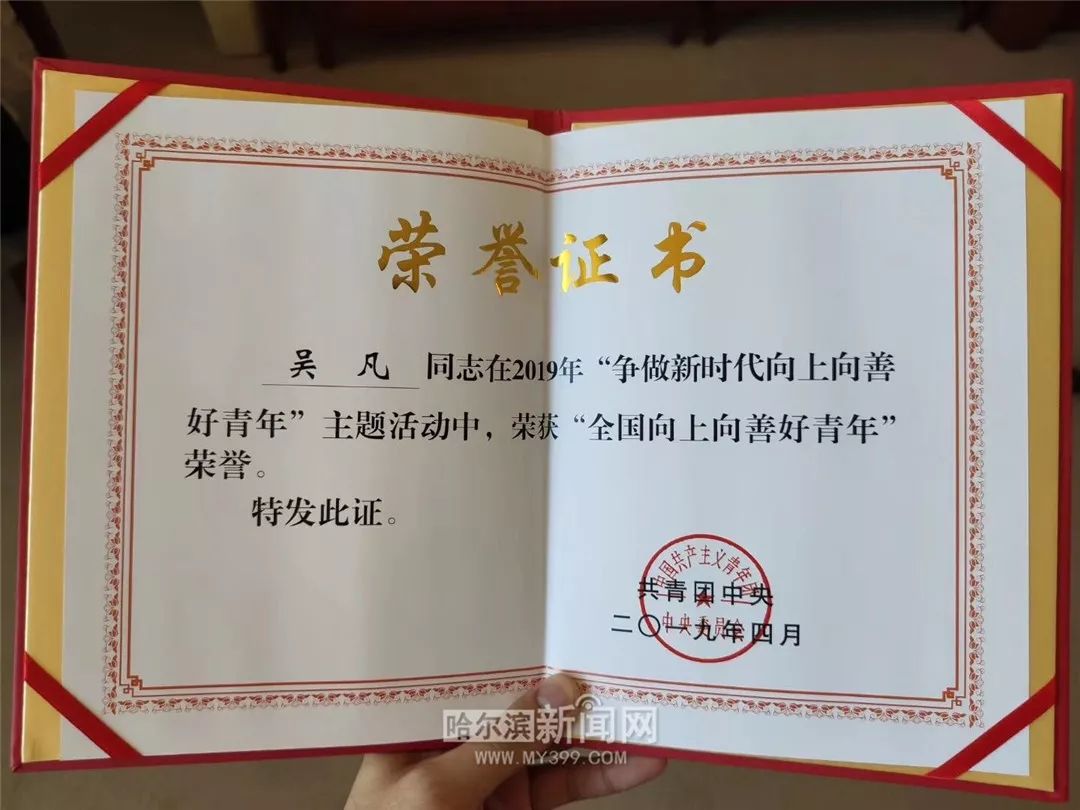 荣誉证书
吴凡 同志在2019年“争做新时代向上向善
好青年”主题活动中，荣获“全国向上向善好青年”
荣誉。
特发此证。
中国共产主义青年团
共青团中央
中央委员会
二〇一九年四月
哈尔滨新闻网
WWW.MY399.COM